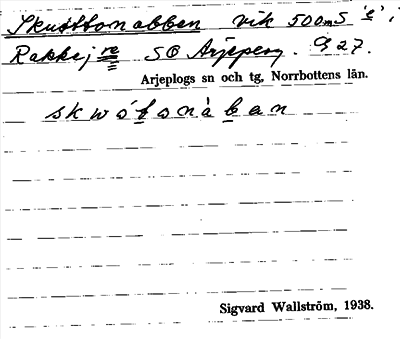 Skuttonabben vik 500mS 'e',
Rakkejaure SO Arjeplog. 927.
Arjeplogs sn och tg, Norrbottens län.
skwótonàban
Sigvard Wallström, 1938.